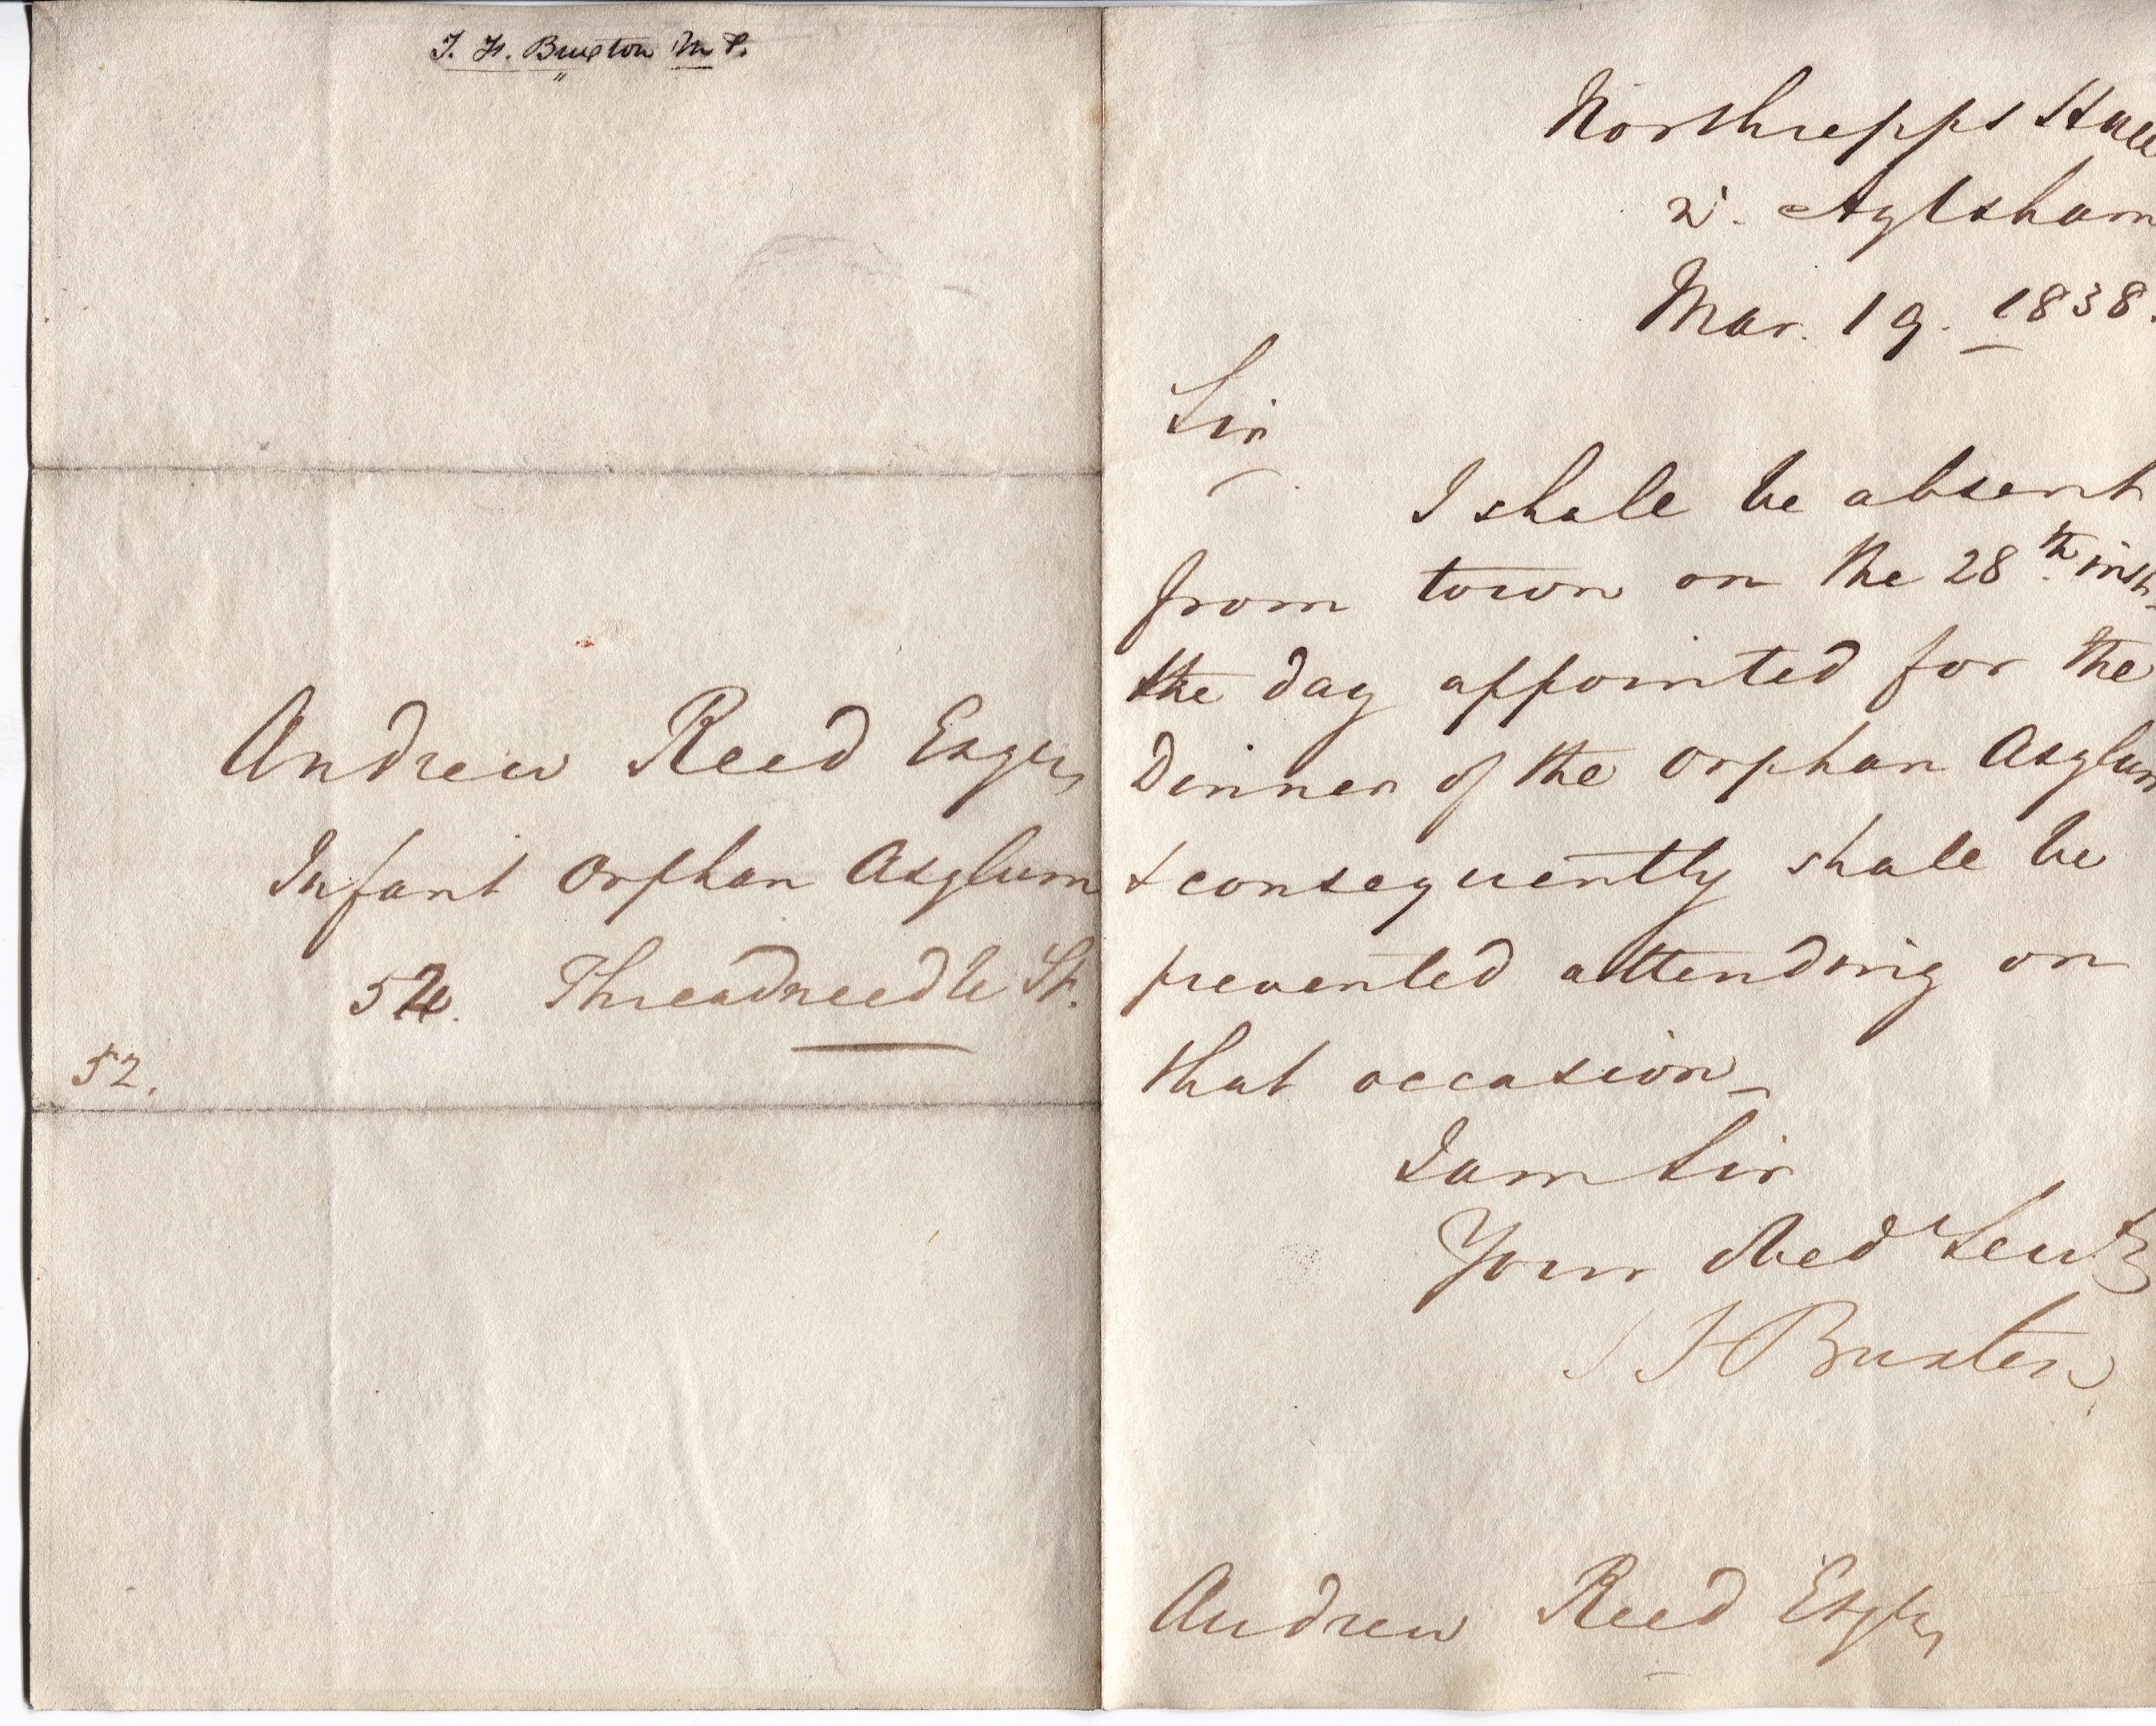 T. F. Buxton M P.
Andrew Reed Esqre,
Infant Orphan Asylum
52. Threadneedle St.
52.
Northrepps Hall
Aylsham
Mar. 19. 1838.
Sir
I shall be absent
from town on the 28th. inst.
the day appointed for the
Dinner of the Orphan Asylum
& consequently shall be
prevented attending on
that occasion
I am Sir
Your Obed Servt
T F Buxton
Andrew Reed Esqre,